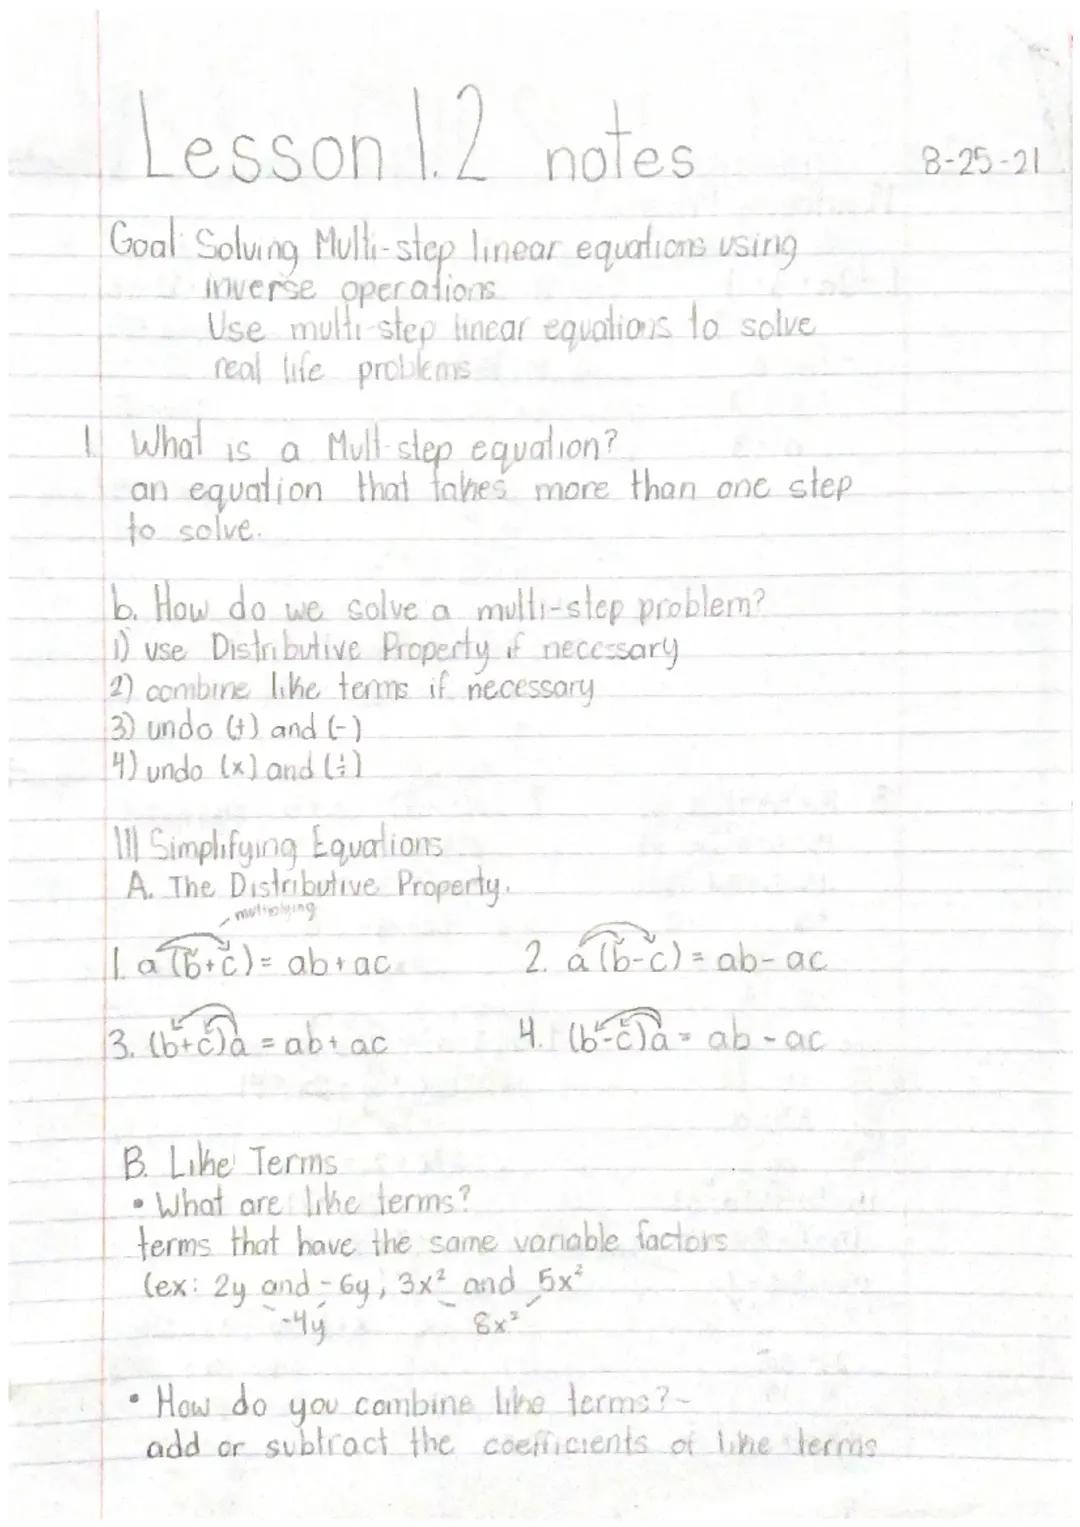 Lesson 1.2 notes 8-25-21
Goal: Solving Multi-step linear equations using
inverse operations
Use multi-step linear equations to solve
real life problems
1. What is a Mult-step equation?
an equation that takes more than one step
to solve.
b. How do we solve a multi-step problem?
1) use Distributive Property if necessary
2) combine like terms if necessary
3) undo (+) and (-)
4) undo (x) and (÷)
III Simplifying Equations
A. The Distributive Property.
multiplying
1. a(b+c) = ab+ac 2. a(b-c) = ab-ac
3. (b+c)a = ab+ac 4. (b-c)a = ab-ac
B. Like Terms
• What are like terms?
terms that have the same variable factors
(ex: 2y and -6y, 3x² and 5x²
-4y 8x²
• How do you combine like terms? -
add or subtract the coefficients of like terms